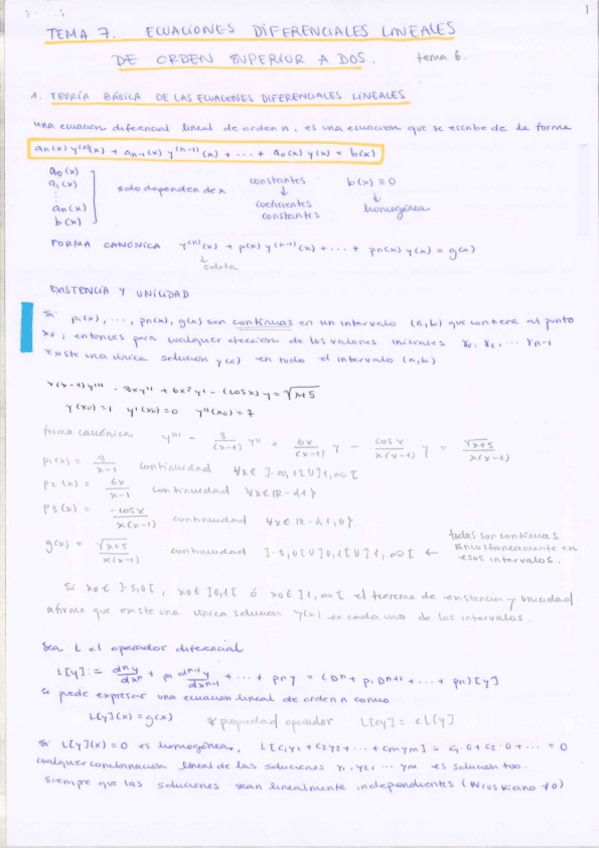 1
TEMA 7. ECUACIONES DIFERENCIALES LINEALES
DE ORDEN SUPERIOR A DOS. tema 6.
1. TEORÍA BÁSICA DE LAS ECUACIONES DIFERENCIALES LINEALES
una ecuacion diferencial lineal de orden n, es una ecuacion que se escribe de la forma
an(x) y(n)(x) + an-1(x) y(n-1)(x) + ... + a0(x) y(x) = b(x)
a0(x)
a1(x)
⋮
an(x)
b(x)
solo dependen de x
constantes
↓
coeficientes
constantes
b(x) ≡ 0
↓
homogénea
FORMA CANÓNICA y(n)(x) + p1(x) y(n-1)(x) + ... + pn(x) y(x) = g(x)
↓
solita
EXISTENCIA Y UNICIDAD
Si p1(x), ..., pn(x), g(x) son continuas en un intervalo (a,b) que contiene al punto
x0, entonces para cualquier eleccion de los valores iniciales γ0, γ1, ... γn-1
existe una única solucion y(x) en todo el intervalo (a,b)
x(x-1)y''' - 3xy'' + 6x²y' - (cosx)y = √x+5
y(x0)=1 y'(x0)=0 y''(x0)=7
forma canónica y''' - 3/(x-1) y'' + 6x/(x-1) y - cosx/x(x-1) y = √x+5/x(x-1)
p1(x) = 3/x-1 continuidad ∀x∈ ]-∞,1[U]1,∞[
p2(x) = 6x/x-1 continuidad ∀x∈IR-{1}
p3(x) = -cosx/x(x-1) continuidad ∀x∈IR-{1,0}
g(x) = √x+5/x(x-1) continuidad ]-5,0[U]0,1[U]1,∞[ ← todas son continuas
simultaneamente en
esos intervalos.
Si x0∈]-5,0[, x0∈]0,1[ ó x0∈]1,∞[ el teorema de existencia y unicidad
afirma que existe una única solucion y(x) en cada uno de los intervalos.
Sea L el operador diferencial
L[y] := dny/dxn + p1 dn-1y/dxn-1 + ... + pny = (Dn + p1Dn+1 + ... + pn)[y]
se puede expresar una ecuacion lineal de orden n como
L[y](x) = g(x) * propiedad operador L[cy] = cL[y]
Si L[y](x)=0 es homogénea, L[c1y1 + c2y2 + ... + cmym] = c1·0 + c2·0 + ... = 0
cualquier combinación lineal de las soluciones y1, y2, ... ym es solucion too.
siempre que las soluciones sean linealmente independientes (Wroskiano ≠0)